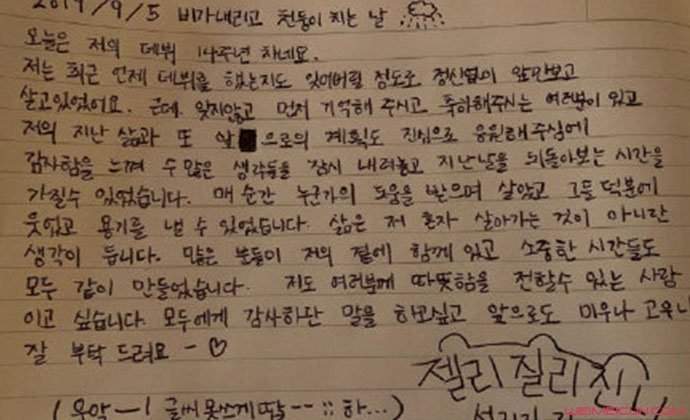 2019/9/5 비가내리고 천둥이 치는 날
오늘은 저의 데뷔 14주년 차네요.
저는 최근 언제 데뷔를 했는지도 잊어버릴 정도로 정신없이 앞만보고
살고있었어요. 근데 잊지않고 먼저 기억해 주시고 축하해주시는 여러분이 있고
저의 지난 삶과 또 앞으로의 계획도 진심으로 응원해 주심에
감사함을 느껴 수많은 생각들을 잠시 내려놓고 지난날을 뒤돌아보는 시간을
가질수 있었습니다. 매 순간 누군가의 도움을 받으며 살았고 그들 덕분에
웃었고 용기를 낼 수 있었습니다. 삶은 저 혼자 살아가는 것이 아니란
생각이 듭니다. 많은 분들이 저의 곁에 함께 있고 소중한 시간들도
모두 같이 만들었습니다. 저도 여러분께 따뜻함을 전할수 있는 사람
이고 싶습니다. 모두에게 감사하단 말을 하고싶고 앞으로도 미우나 고우나
잘 부탁 드려요 - ♡
젤리질리진
글씨 못쓰게땀--;; 하...)